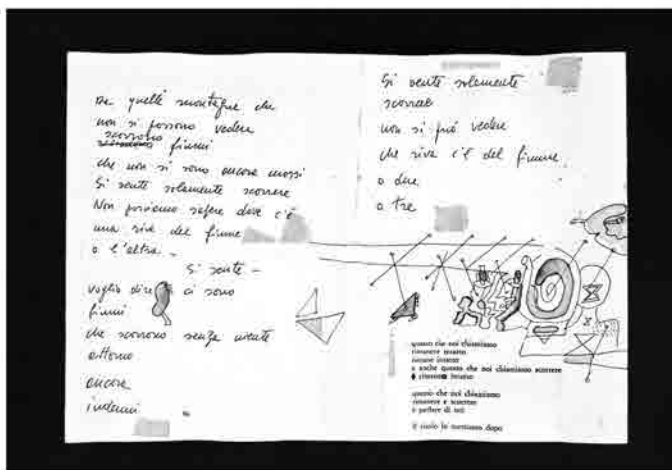 Da quelle montagne che
non si possono vedere
scorrono fiumi
che non si sono ancora mossi
Si sente solamente scorrere
Non possiamo sapere dove c'è
una riva del fiume
o l'altra –
Si sente –
voglio dire ci sono
fiumi
che scorrono senza niente
attorno
ancora
indenni
Si sente solamente
scorrere
non si può vedere
che riva c'è del fiume
o due
o tre
questo che noi chiamiamo
rimanere intatto
rimane intatto
e anche questo che noi chiamiamo scorrere
rimane intatto
questo che noi chiamiamo
rimanere e scorrere
è parlare di noi
il ruolo lo mettiamo dopo